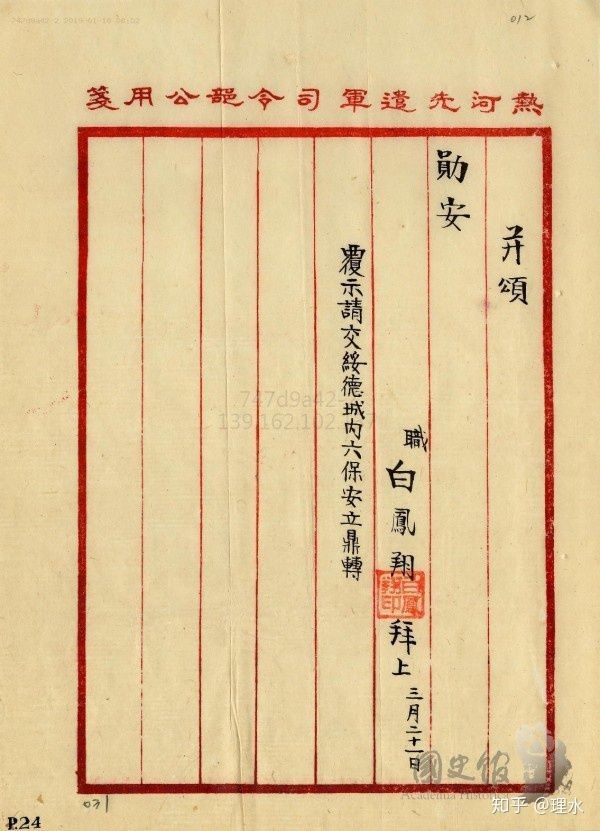 747d9a42-2 2019-01-10 08:02
012
熱河先遣軍司令部公用箋
并頌
勛安
職白鳳翔拜上三月二十一日
白鳳翔印
覆示請交綏德城內六保安立鼎轉
747d9a42-
139.162.102.
國史館
Academia Historica
知乎 @理水
031
P.24